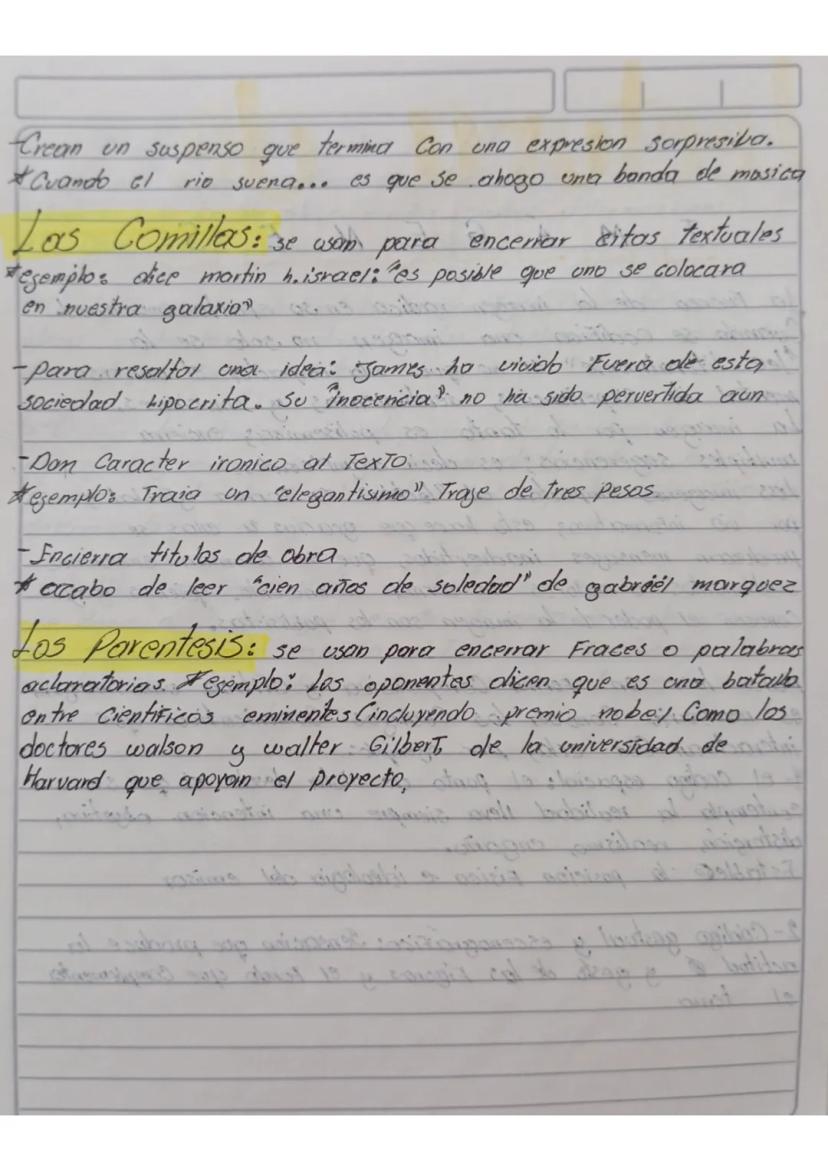 -Crean un suspenso que termina Con una expresion sorpresiva.
*Cuando el rio suena... es que se ahogo una banda de musica
Las Comillas: se usan para encerrar citas textuales
*ejemplo: dice martin h. israel: "es posible que uno se colocara
en nuestra galaxia"
-para resaltar una idea: James ha vivido Fuera de esta
sociedad hipocrita. Su "inocencia" no ha sido pervertida aun
-Dan Caracter ironico al Texto
*ejemplo: Traia un "elegantisimo" Traje de Tres pesos
-Encierra titulos de obra
*acabo de leer "cien años de soledad" de gabriel marquez
Los Parentesis: se usan para encerrar Fraces o palabras
aclaratorias. *ejemplo: los oponentes dicen que es una batalla
entre Cientificos eminentes (incluyendo premio nobel Como los
doctores walson y walter Gilbert, de la universidad de
Harvard que apoyan el proyecto,